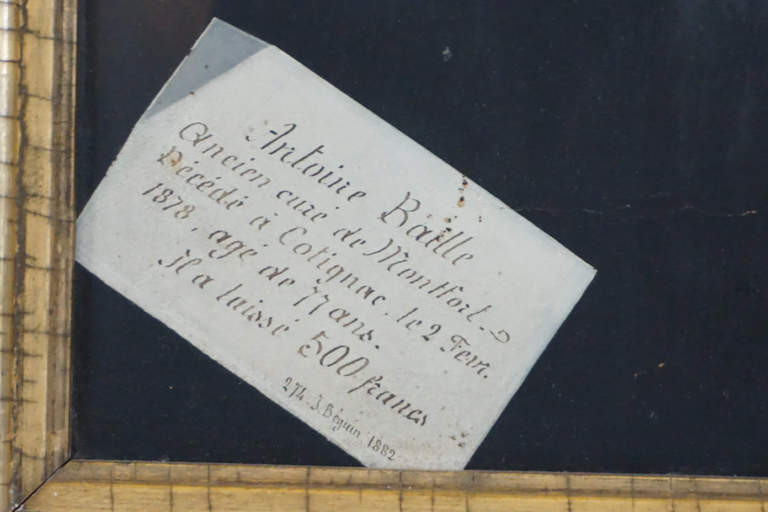 Antoine Baille
Ancien curé de Montfort
Décédé à Cotignac, le 2 Fevr.
1878, agé de 77 ans.
Il a laissé 500 francs
274 - J. Béguin 1882